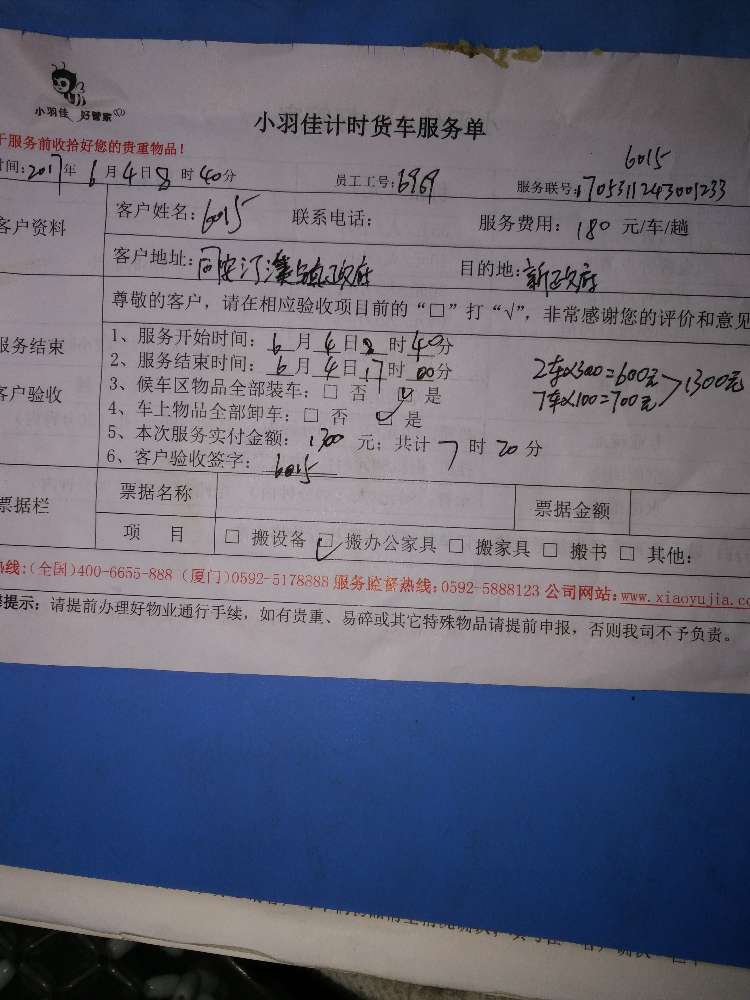 小羽佳 好管家
小羽佳计时货车服务单
于服务前收拾好您的贵重物品！
6015
时间：2017年6月4日8时40分 员工工号：6969 服务联号：1705311243001233
客户资料
客户姓名：6015 联系电话： 服务费用：180元/车/趟
客户地址：同安汀溪镇政府 目的地：新政府
尊敬的客户，请在相应验收项目前的“□”打“√”，非常感谢您的评价和意见
服务结束
客户验收
1、服务开始时间：6月4日8时40分
2、服务结束时间：6月4日17时00分
3、候车区物品全部装车：□ 否 ☑ 是
4、车上物品全部卸车：□ 否 ☑ 是
5、本次服务实付金额：1300元；共计7时20分
6、客户验收签字：6015
2车×300=600元
7车×100=700元
1300元
票据栏
票据名称 票据金额
项 目 □ 搬设备 ☑ 搬办公家具 □ 搬家具 □ 搬书 □ 其他：
热线：(全国)400-6655-888 (厦门)0592-5178888 服务监督热线：0592-5888123 公司网站：www.xiaoyujia.co
提示：请提前办理好物业通行手续，如有贵重、易碎或其它特殊物品请提前申报，否则我司不予负责。